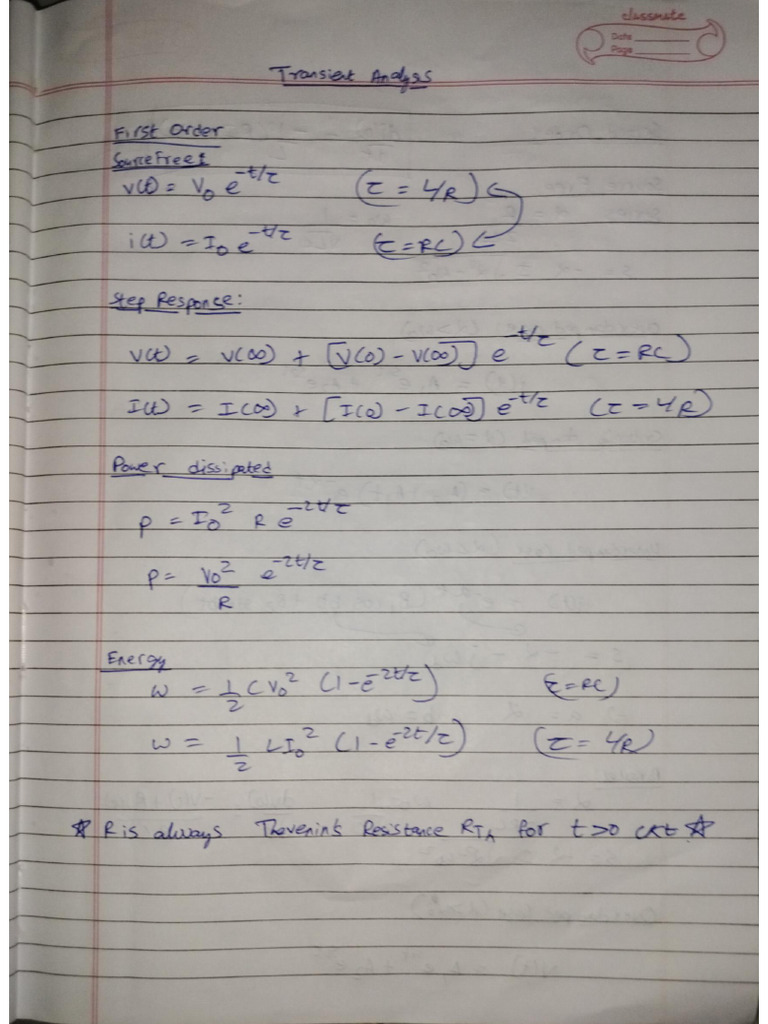 classmate
Date
Page
Transient Analysis
First Order
Source Free:
v(t) = V₀ e^{-t/τ} (τ = L/R)
i(t) = I₀ e^{-t/τ} (τ = RC)
Step Response:
V(t) = V(∞) + [V(0) - V(∞)] e^{-t/τ} (τ = RC)
I(t) = I(∞) + [I(0) - I(∞)] e^{-t/τ} (τ = L/R)
Power dissipated
P = I₀² R e^{-2t/τ}
P = V₀²/R e^{-2t/τ}
Energy
w = 1/2 CV₀² (1 - e^{-2t/τ}) (τ = RC)
w = 1/2 LI₀² (1 - e^{-2t/τ}) (τ = L/R)
☆ R is always Thevenin's Resistance R_Th for t>0 CKt ☆